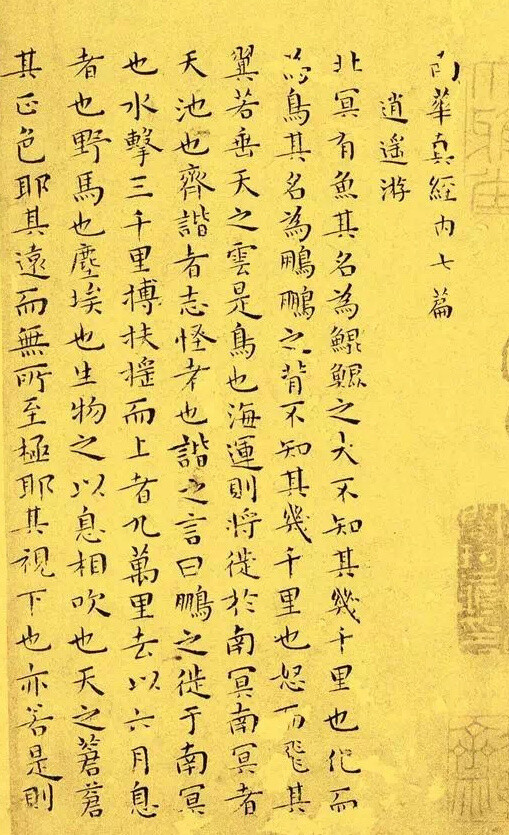 南華真經內七篇
逍遙游
北冥有魚其名為鯤鯤之大不知其幾千里也化而
為鳥其名為鵬鵬之背不知其幾千里也怒而飛其
翼若垂天之雲是鳥也海運則將徙於南冥南冥者
天池也齊諧者志怪者也諧之言曰鵬之徙于南冥
也水擊三千里搏扶搖而上者九萬里去以六月息
者也野馬也塵埃也生物之以息相吹也天之蒼蒼
其正色耶其遠而無所至極耶其視下也亦若是則